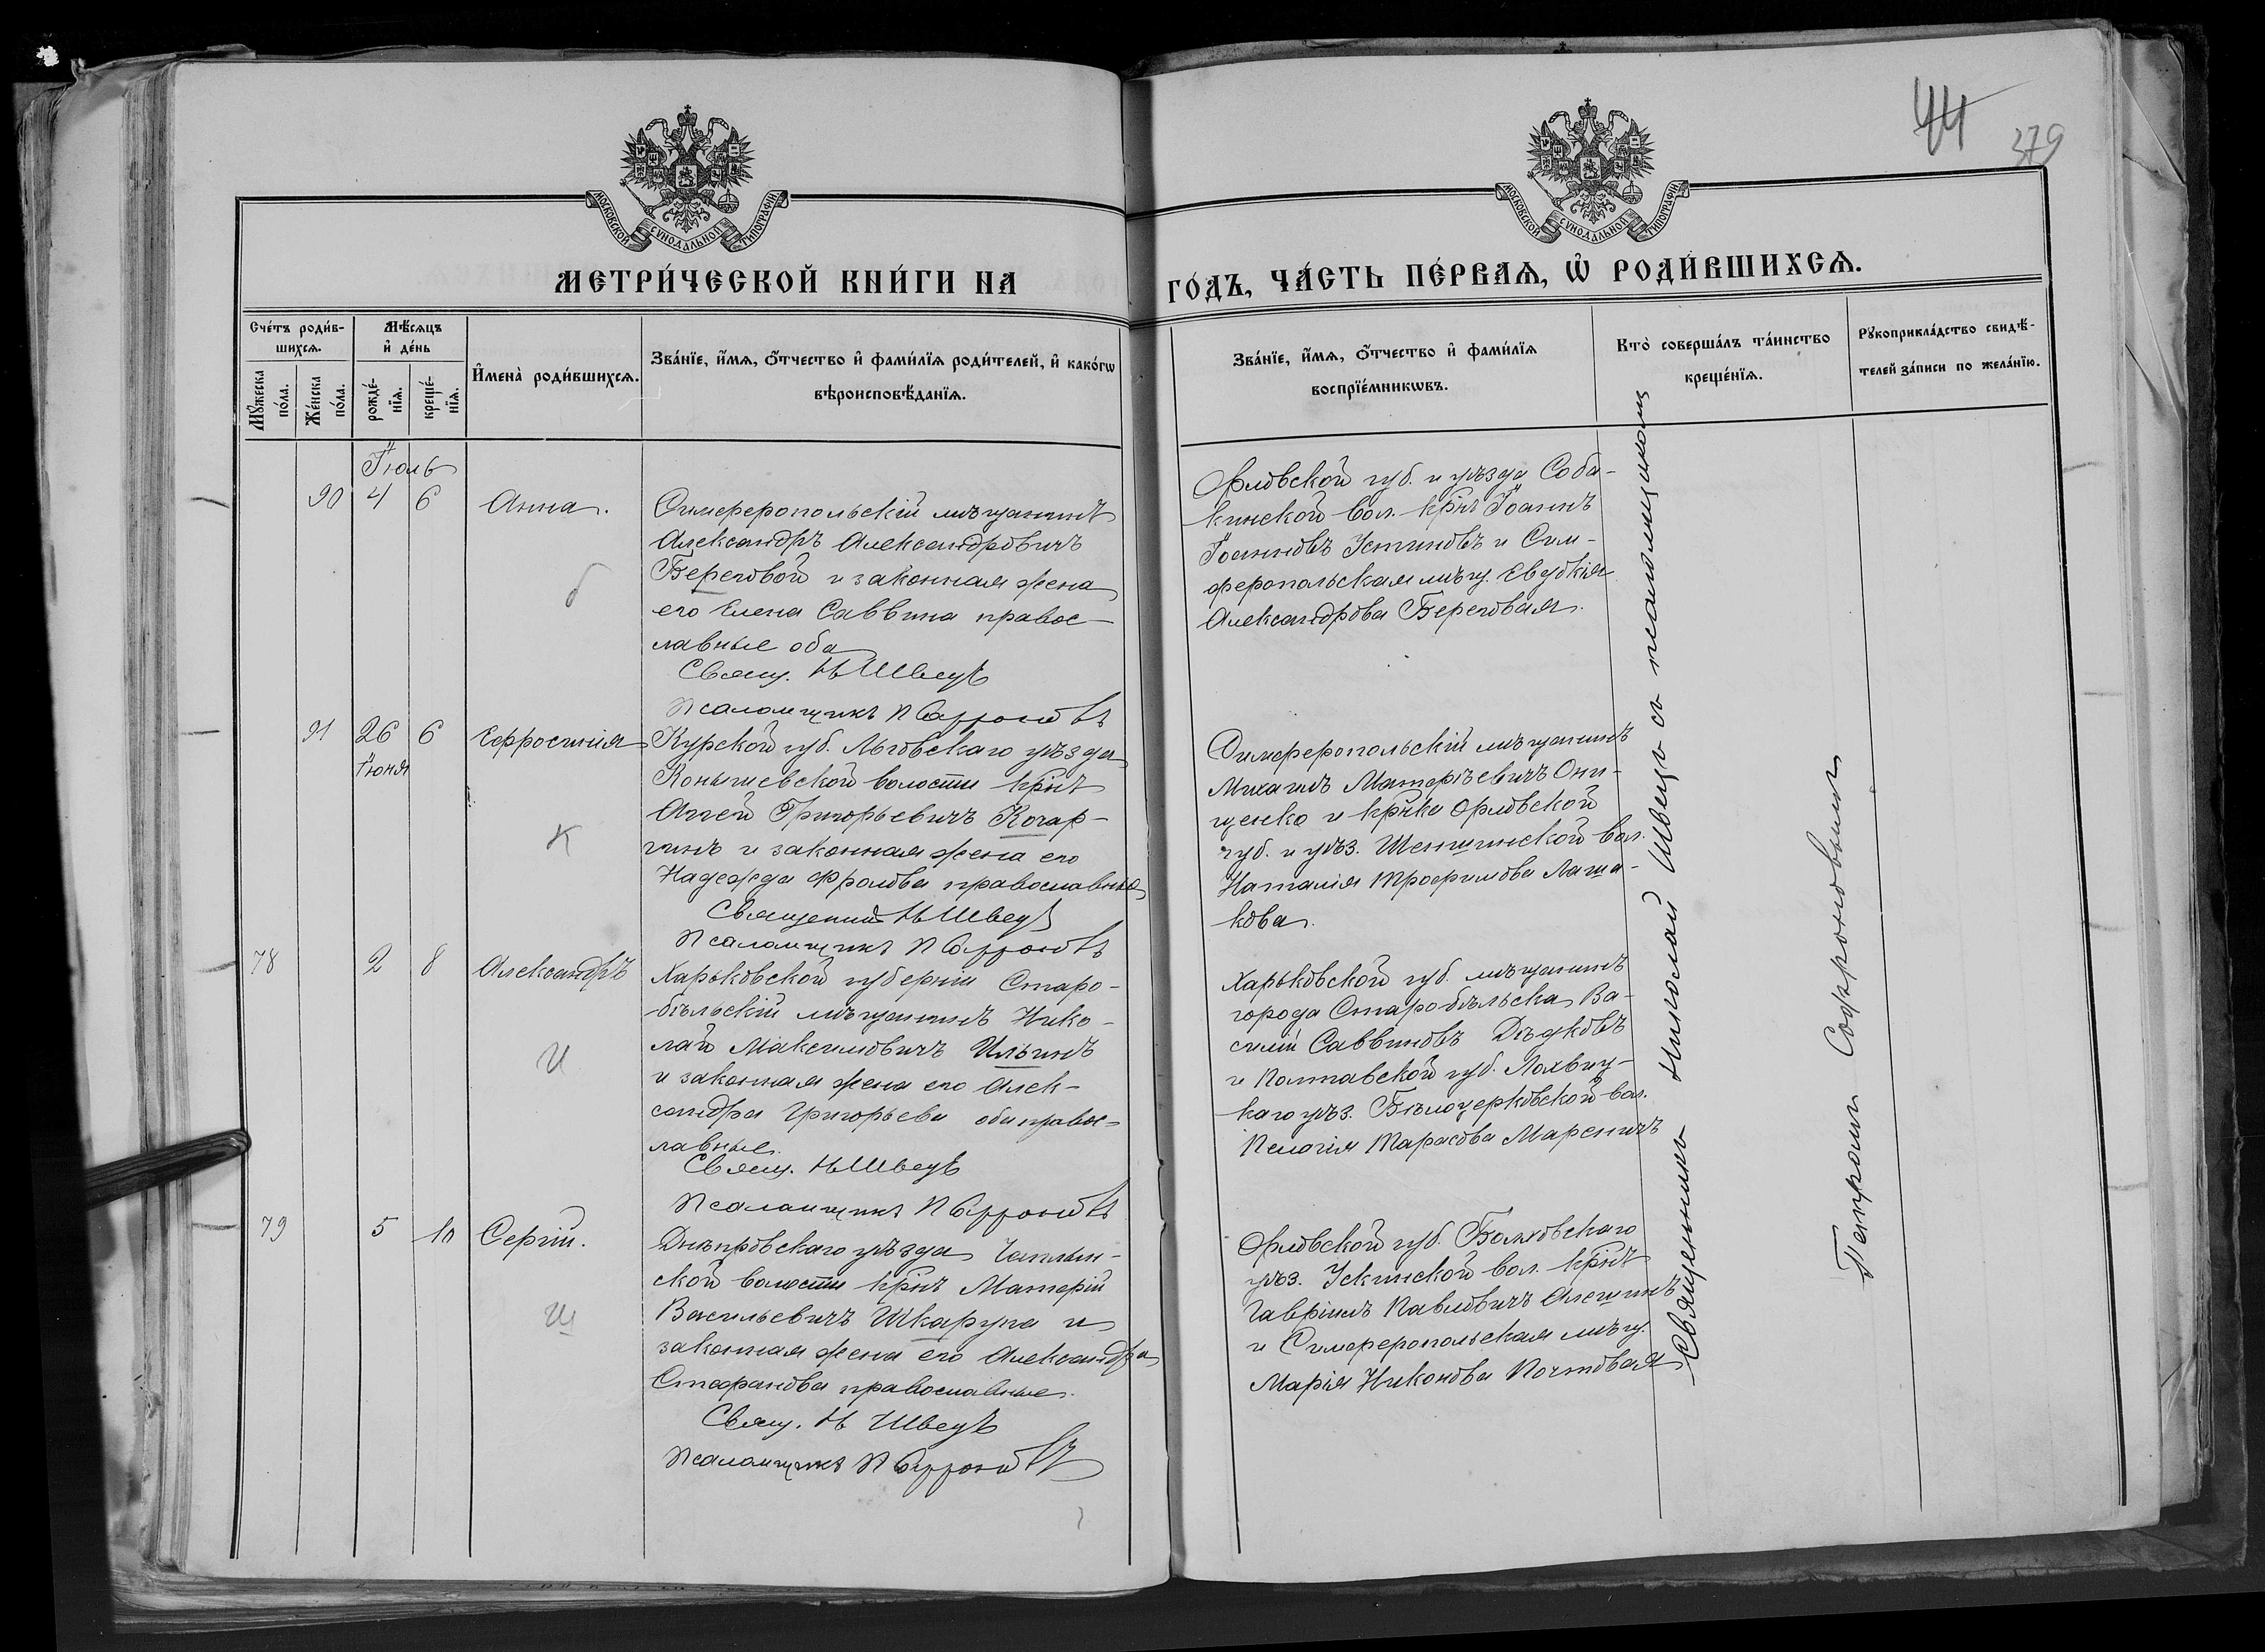 44
379
МОСКОВСКОЙ СУНОДАЛЬНОЙ ТИПОГРАФІИ
МОСКОВСКОЙ СУНОДАЛЬНОЙ ТИПОГРАФІИ
МЕТРИ́ЧЕСКОЙ КНИ́ГИ НА
ГО́ДЪ, ЧА́СТЬ ПЕ́РВАѦ, Ѡ҆ РОДИ́ВШИХСѦ.
Сче́тъ роди́в-
шихсѧ.
Мꙋ́жеска по́ла.
Же́нска по́ла.
Мѣ́сѧцъ
и҆ де́нь
рожде́-
нїѧ.
креще́-
нїѧ.
И҆мена̀ роди́вшихсѧ.
Зва́нїе, и҆́мѧ, ѻ҆́тчество и҆ фами́лїѧ роди́телей, и҆ како́гѡ
вѣроисповѣ́данїѧ.
Зва́нїе, и҆́мѧ, ѻ҆́тчество и҆ фами́лїѧ
воспрїе́мникѡвъ.
Кто̀ соверша́лъ та́инство
креще́нїѧ.
Рꙋкоприкла́дство свидѣ́-
телей за́писи по жела́нїю.
Іюль
90 4 6 Анна.
Симферопольскій мѣщанинъ
Александръ Александровичъ
Береговой и законная жена
его Елена Саввина правос-
лавные оба
Свящ. Н Швецъ
Псаломщикъ П Софроновъ
б
Орловской губ. и уѣзда Соба-
кинской вол. крнъ Іоаннъ
Іоанновъ Устиновъ и Сим-
феропольская мѣщ. Евдокія
Александрова Береговая.
91 26 6 Ефросинія
Іюня
Курской губ. Льговскаго уѣзда
Конышевской волости крнъ
Агей Григорьевичъ Кочер-
гинъ и законная жена его
Надежда Фролова православные
Священникъ Н Швецъ
Псаломщикъ П Софроновъ
К
Симферопольскій мѣщанинъ
Михаилъ Матфѣевичъ Они-
щенко и крнка Орловской
губ. и уѣз. Шеншинской вол.
Наталія Трофимова Лаша-
кова.
78 2 8 Александръ
Харьковской губерніи Старо-
бѣльскій мѣщанинъ Нико-
лай Максимовичъ Ильинъ
и законная жена его Алек-
сандра Григорьева оба правос-
лавные.
Свящ. Н Швецъ
Псаломщикъ П Софроновъ
И
Харьковской губ. мѣщанинъ
города Старобѣльска Ва-
силій Саввиновъ Дѣдковъ
и Полтавской губ. Лохвиц-
каго уѣз. Бѣлоцерковской вол.
Пелагія Тарасова Мареничъ
79 5 10 Сергій.
Днѣпровскаго уѣзда Чаплин-
ской волости крнъ Матфій
Васильевичъ Шкарупа и
законная жена его Александра
Стефанова православные.
Свящ. Н Швецъ
Псаломщикъ П Софроновъ
Ш
Орловской губ. Болховскаго
уѣз. Ускинской вол. крнъ
Гавріилъ Павловичъ Алешинъ
и Симферопольская мѣщ.
Марія Никонова Почтовая
Священникъ Николай Швецъ съ псаломщикомъ
Петромъ Софроновымъ